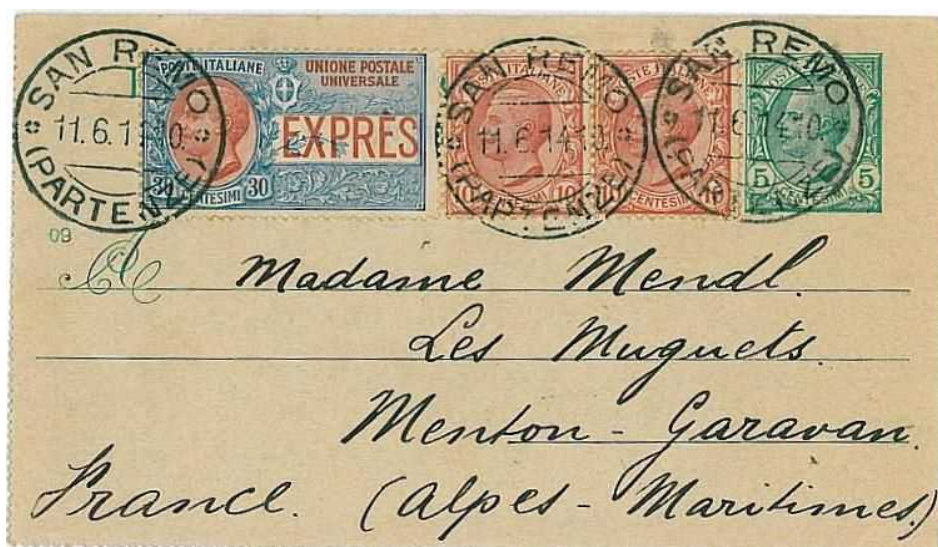 SAN REMO
11.6.1 0.
(PARTENZE)
POSTE ITALIANE
UNIONE POSTALE
UNIVERSALE
EXPRÈS
30 CENTESIMI 30
SAN REMO
11.6.14 10.
(PARTENZE)
POSTE ITALIANE
10 CENTESIMI 10
POSTE ITALIANE
CENTESIMI 10
SAN REMO
11.6.14 10.
(PARTENZE)
POSTE
5 CENTESIMI 5
09
A Madame Mendl.
Les Muguets.
Menton - Garavan.
France. (Alpes - Maritimes)